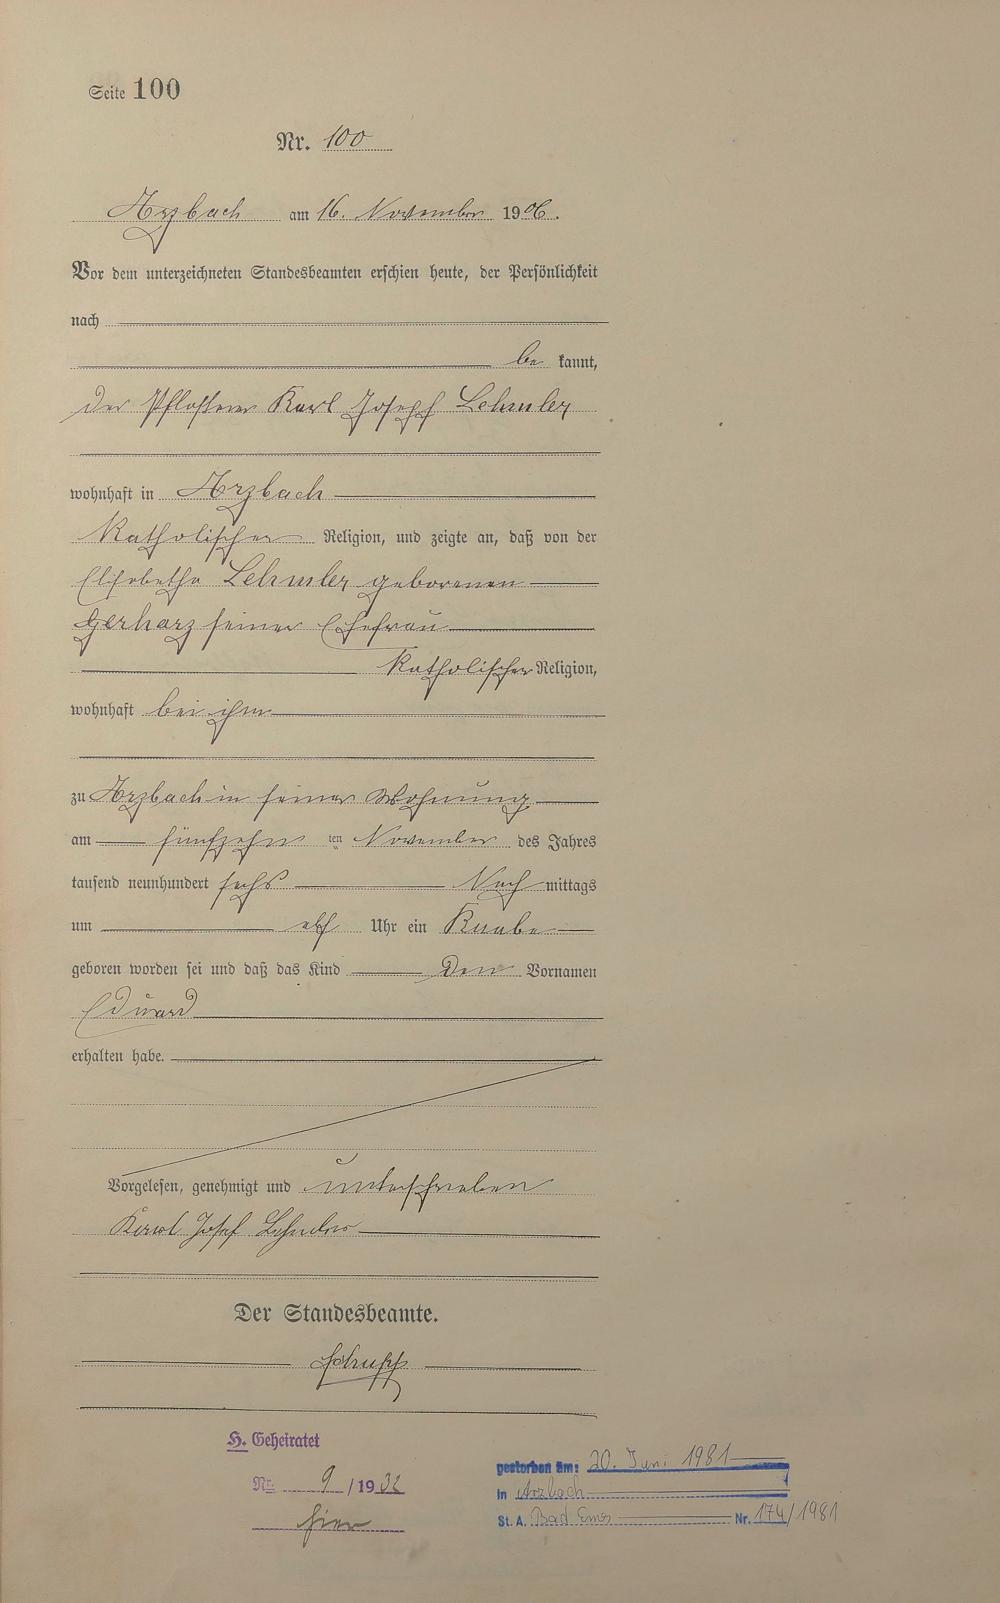 Seite 100
Nr. 100
Arzbach am 16. November 1906.
Vor dem unterzeichneten Standesbeamten erschien heute, der Persönlichkeit
nach
be kannt,
der Pflasterer Karl Joseph Lehmler
wohnhaft in Arzbach
katholischer Religion, und zeigte an, daß von der
Elisabetha Lehmler geborenen
Gerharz seiner Ehefrau
katholischer Religion,
wohnhaft bei ihm
zu Arzbach in seiner Wohnung
am fünfzehn ten November des Jahres
tausend neunhundert sechs Nach mittags
um elf Uhr ein Knabe
geboren worden sei und daß das Kind den Vornamen
Eduard
erhalten habe.
Vorgelesen, genehmigt und unterschrieben
Karl Josef Lehmler
Der Standesbeamte.
Schupp
H. Geheiratet
Nr. 9 / 1932
hier
gestorben am: 20. Juni 1981
in Arzbach
St. A. Bad Ems Nr. 174/1981